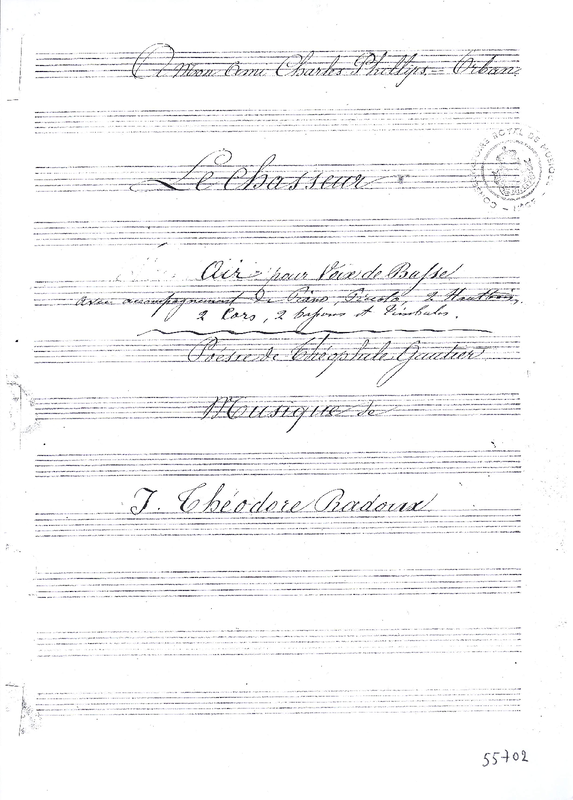 A mon ami Charles Philtjes - Orban
Le Chasseur
Air pour Voix de Basse
avec accompagnement de Piano, Piccolo, 2 Hautbois,
2 Cors, 2 Bassons et Timbales.
Poésie de Théophile Gautier
Musique de
J. Théodore Radoux
55702